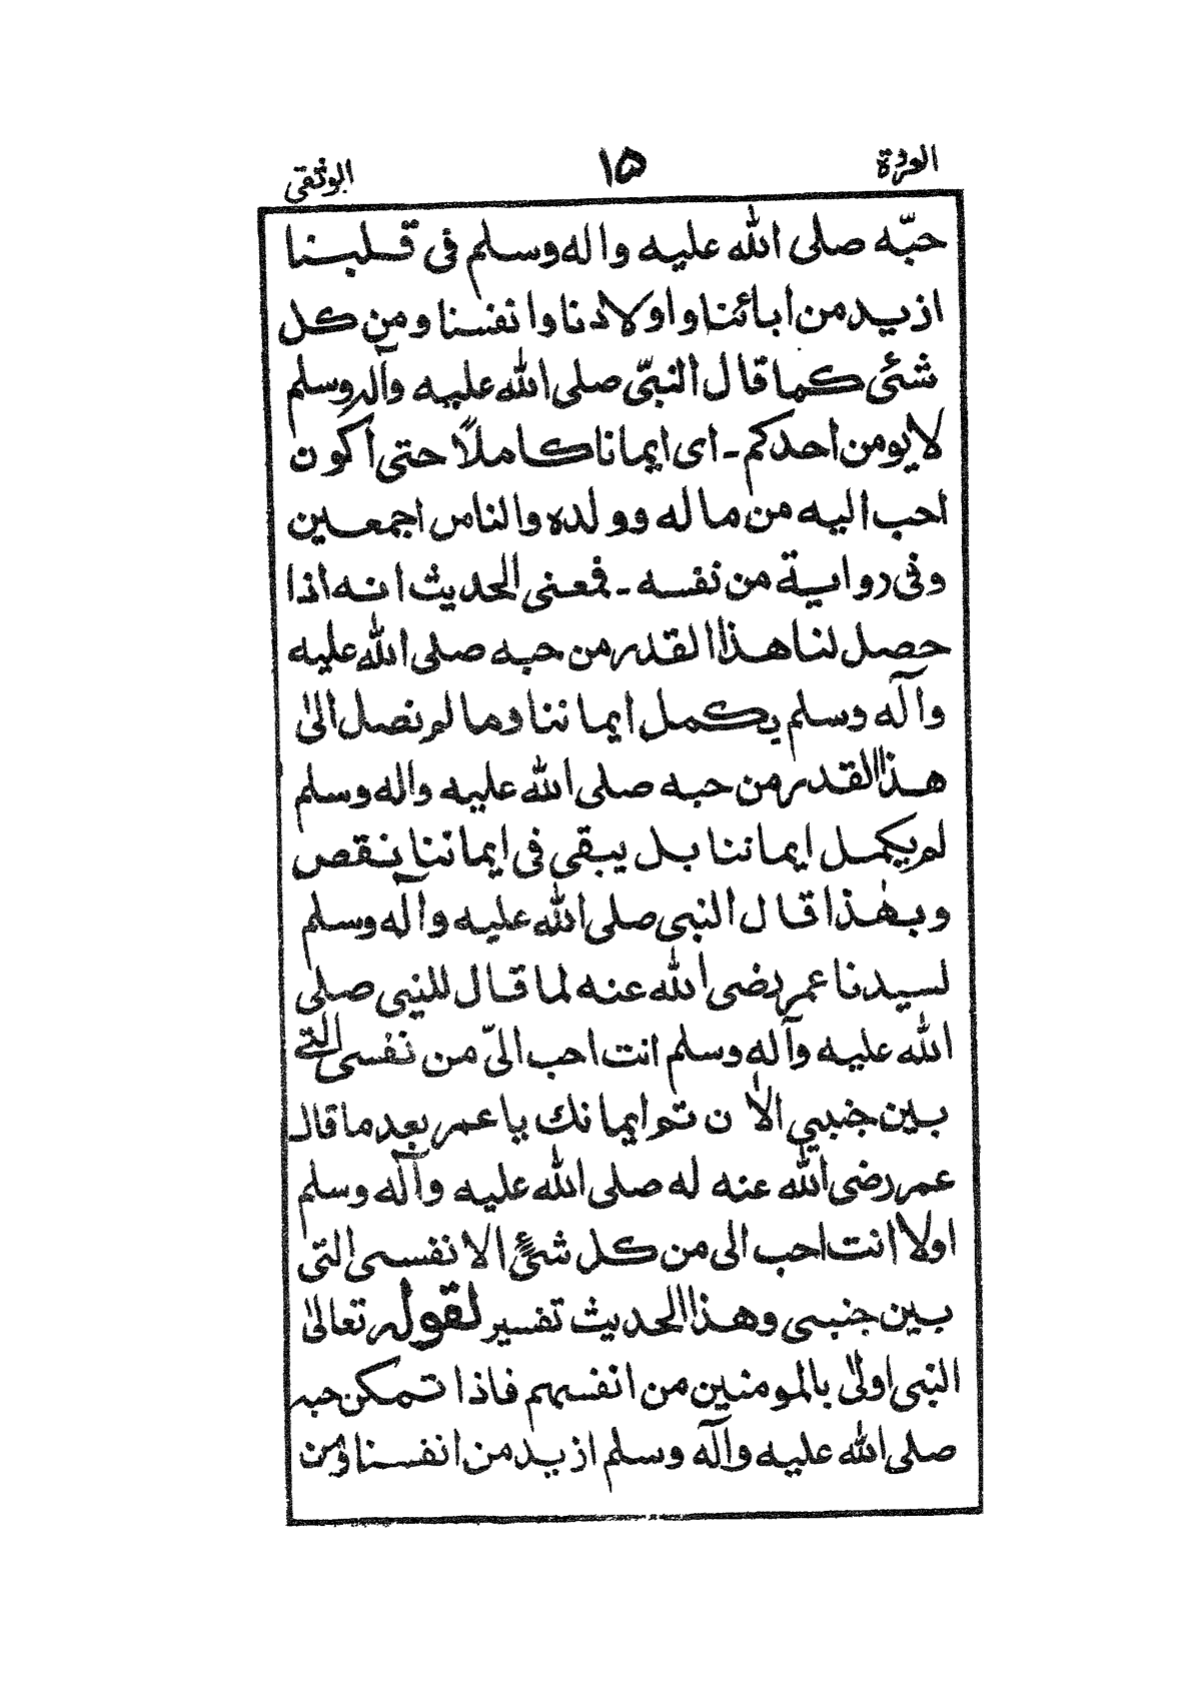 العروة ١۵ الوثقى
حبّه صلى الله عليه واله وسلم فى قلبنا
ازيد من ابائنا و اولادنا وانفسنا ومن كل
شئى كما قال النبىّ صلى الله عليه وآله وسلم
لا يومن احدكم ـ اى ايمانا كاملاً حتى اكون
احب اليه من ماله وولده والناس اجمعين
وفى رواية من نفسه ـ فمعنى الحديث انه اذا
حصل لنا هذا القدر من حبه صلى الله عليه
وآله وسلم يكمل ايماننا وما لم نصل الىٰ
هذا القدر من حبه صلى الله عليه واله وسلم
لم يكمل ايماننا بل يبقى فى ايماننا نقص
وبهٰذا قال النبى صلى الله عليه وآله وسلم
لسيدنا عمر رضى الله عنه لما قال للنبى صلى
الله عليه وآله وسلم انت احب الىّ من نفسى التے
بين جنبيي الاٰن تم ايمانك يا عمر بعد ما قال
عمر رضى الله عنه له صلى الله عليه وآله وسلم
اولا انت احب الى من كل شئ الا نفسى التى
بين جنبى وهذا الحديث تفسير لقوله تعالىٰ
النبى اولىٰ بالمومنين من انفسهم فاذا تمكن حبه
صلى الله عليه وآله وسلم ازيد من انفسنا ومن